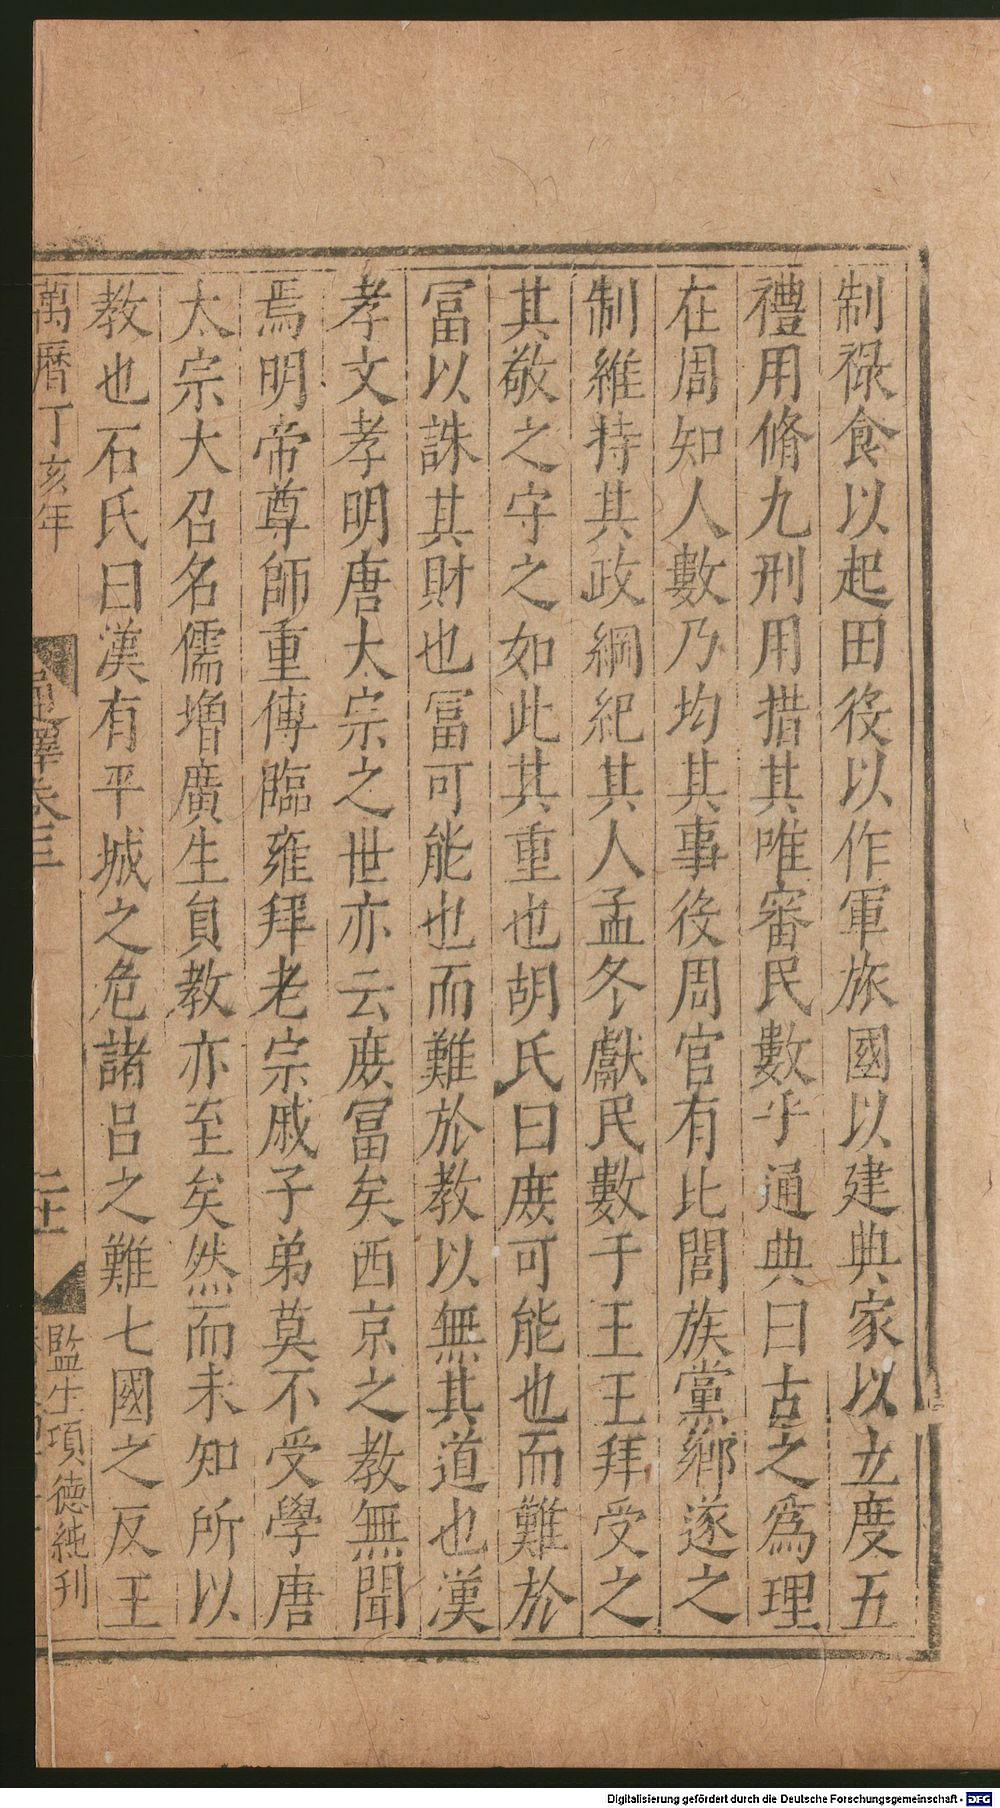 制祿食以起田役以作軍旅國以建典家以立度五
禮用脩九刑用措其唯審民數乎通典曰古之爲理
在周知人數乃均其事役周官有比閭族黨鄉遂之
制維持其政綱紀其人孟冬獻民數于王王拜受之
其敬之守之如此其重也胡氏曰庻可能也而難於
冨以誅其財也冨可能也而難於教以無其道也漢
孝文孝明唐太宗之世亦云庻冨矣西京之教無聞
焉明帝尊師重傳臨雍拜老宗戚子弟莫不受學唐
太宗大召名儒増廣生員教亦至矣然而未知所以
教也石氏曰漢有平城之危諸呂之難七國之反王
萬曆丁亥年
卷三
監生項德純刊
Digitalisierung gefördert durch die Deutsche Forschungsgemeinschaft - DFG